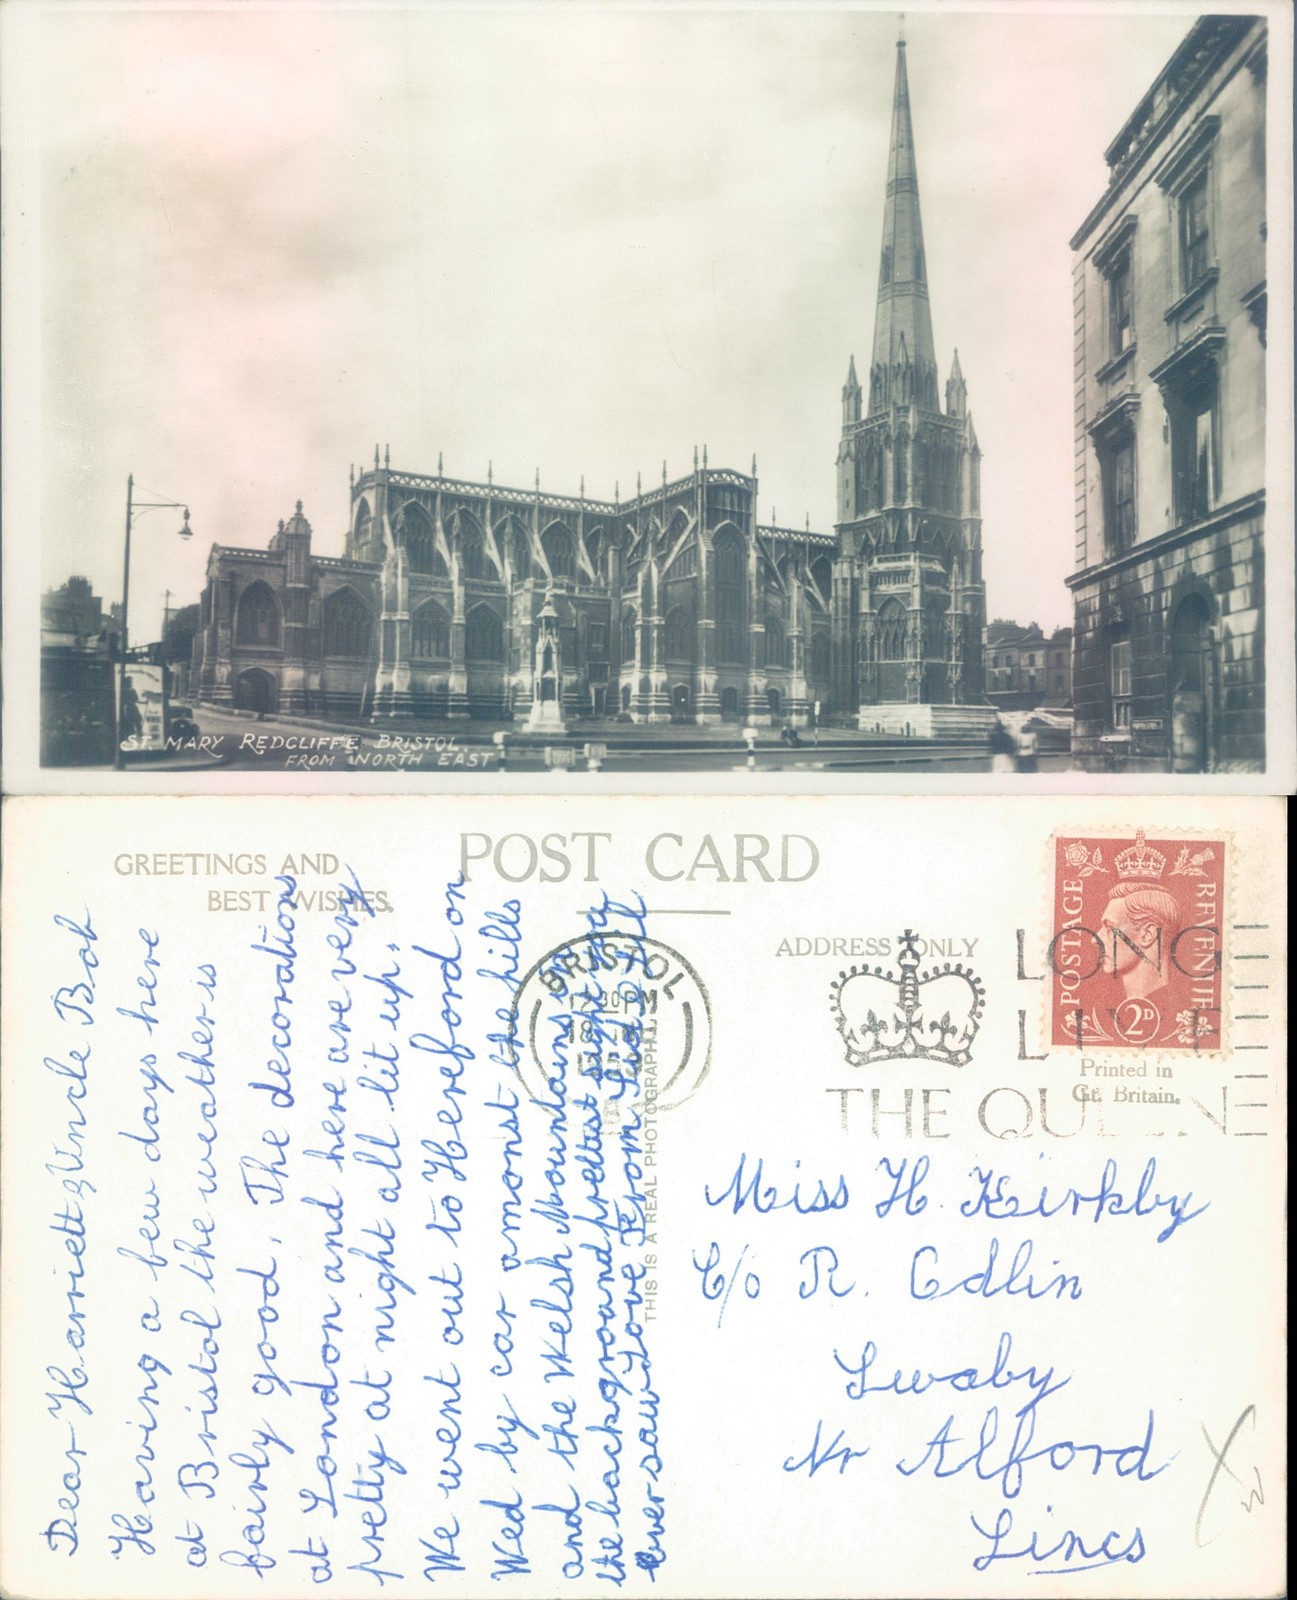 ST. MARY REDCLIFFE, BRISTOL.
FROM NORTH EAST
GREETINGS AND
BEST WISHES.
POST CARD
ADDRESS ONLY
THIS IS A REAL PHOTOGRAPH
Printed in
Gt. Britain.
POSTAGE
REVENUE
2D
BRISTOL
30 PM
LONG
LIVE
THE QUEEN
Dear Harriett & Uncle Bob
Having a few days here
at Bristol the weather is
fairly good. The decorations
at London and here are very
pretty at night all lit up.
We went out to Hereford on
Wed by car amonst the hills
and the Welsh Mountains in
the background prettest sight we
ever saw Love From
Miss H. Kirkby
C/o R. Odlin
Swaby
Nr Alford
Lincs